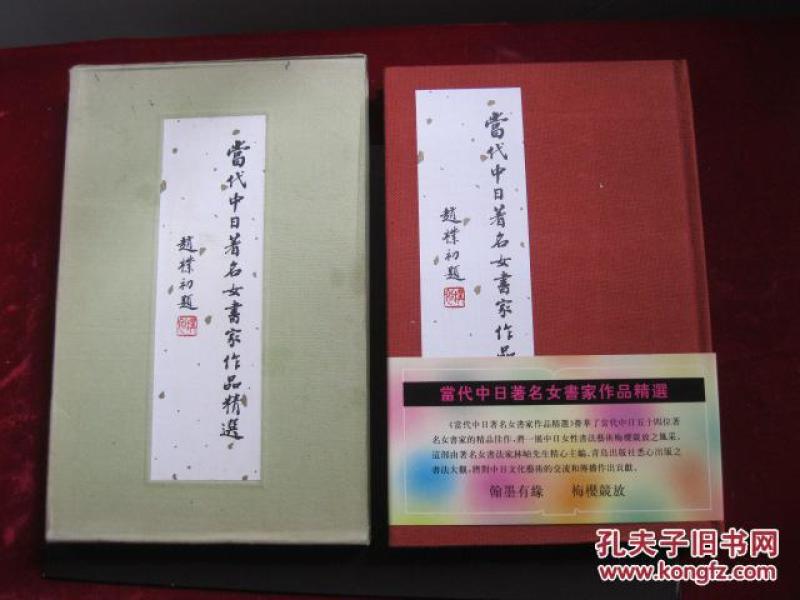 當代中日著名女書家作品精選
趙樸初題
當代中日著名女書家作品
趙樸初題
當代中日著名女書家作品精選
《當代中日著名女書家作品精選》薈萃了當代中日五十四位著
名女書家的精品佳作，將一展中日女性書法藝術梅櫻競放之風采。
這部由著名女書法家林岫先生精心主編、青島出版社悉心出版之
書法大觀，將對中日文化藝術的交流和傳播作出貢獻。
翰墨有緣 梅櫻競放
孔夫子旧书网
www.kongfz.com